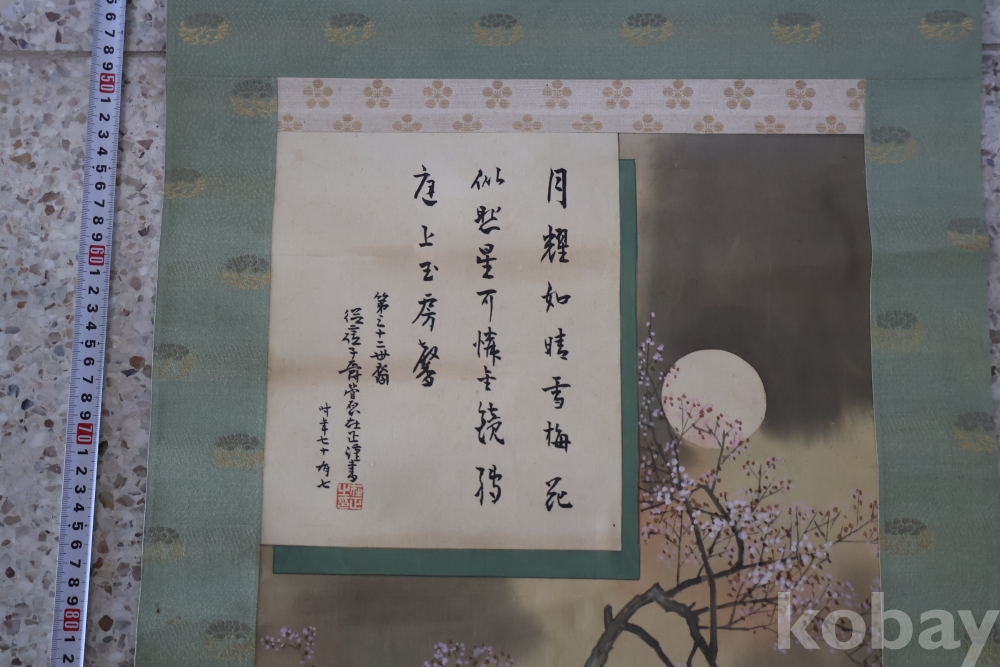 月耀如晴雪梅花
似照星可憐金鏡轉
庭上玉房馨
第三十二世裔
從二位子爵菅原在正謹書
時年七十有七
6 7 8 9 50 1 2 3 4 5 6 7 8 9 60 1 2 3 4 5 6 7 8 9 70 1 2 3 4 5 6 7 8 9 80 1 2
kobay